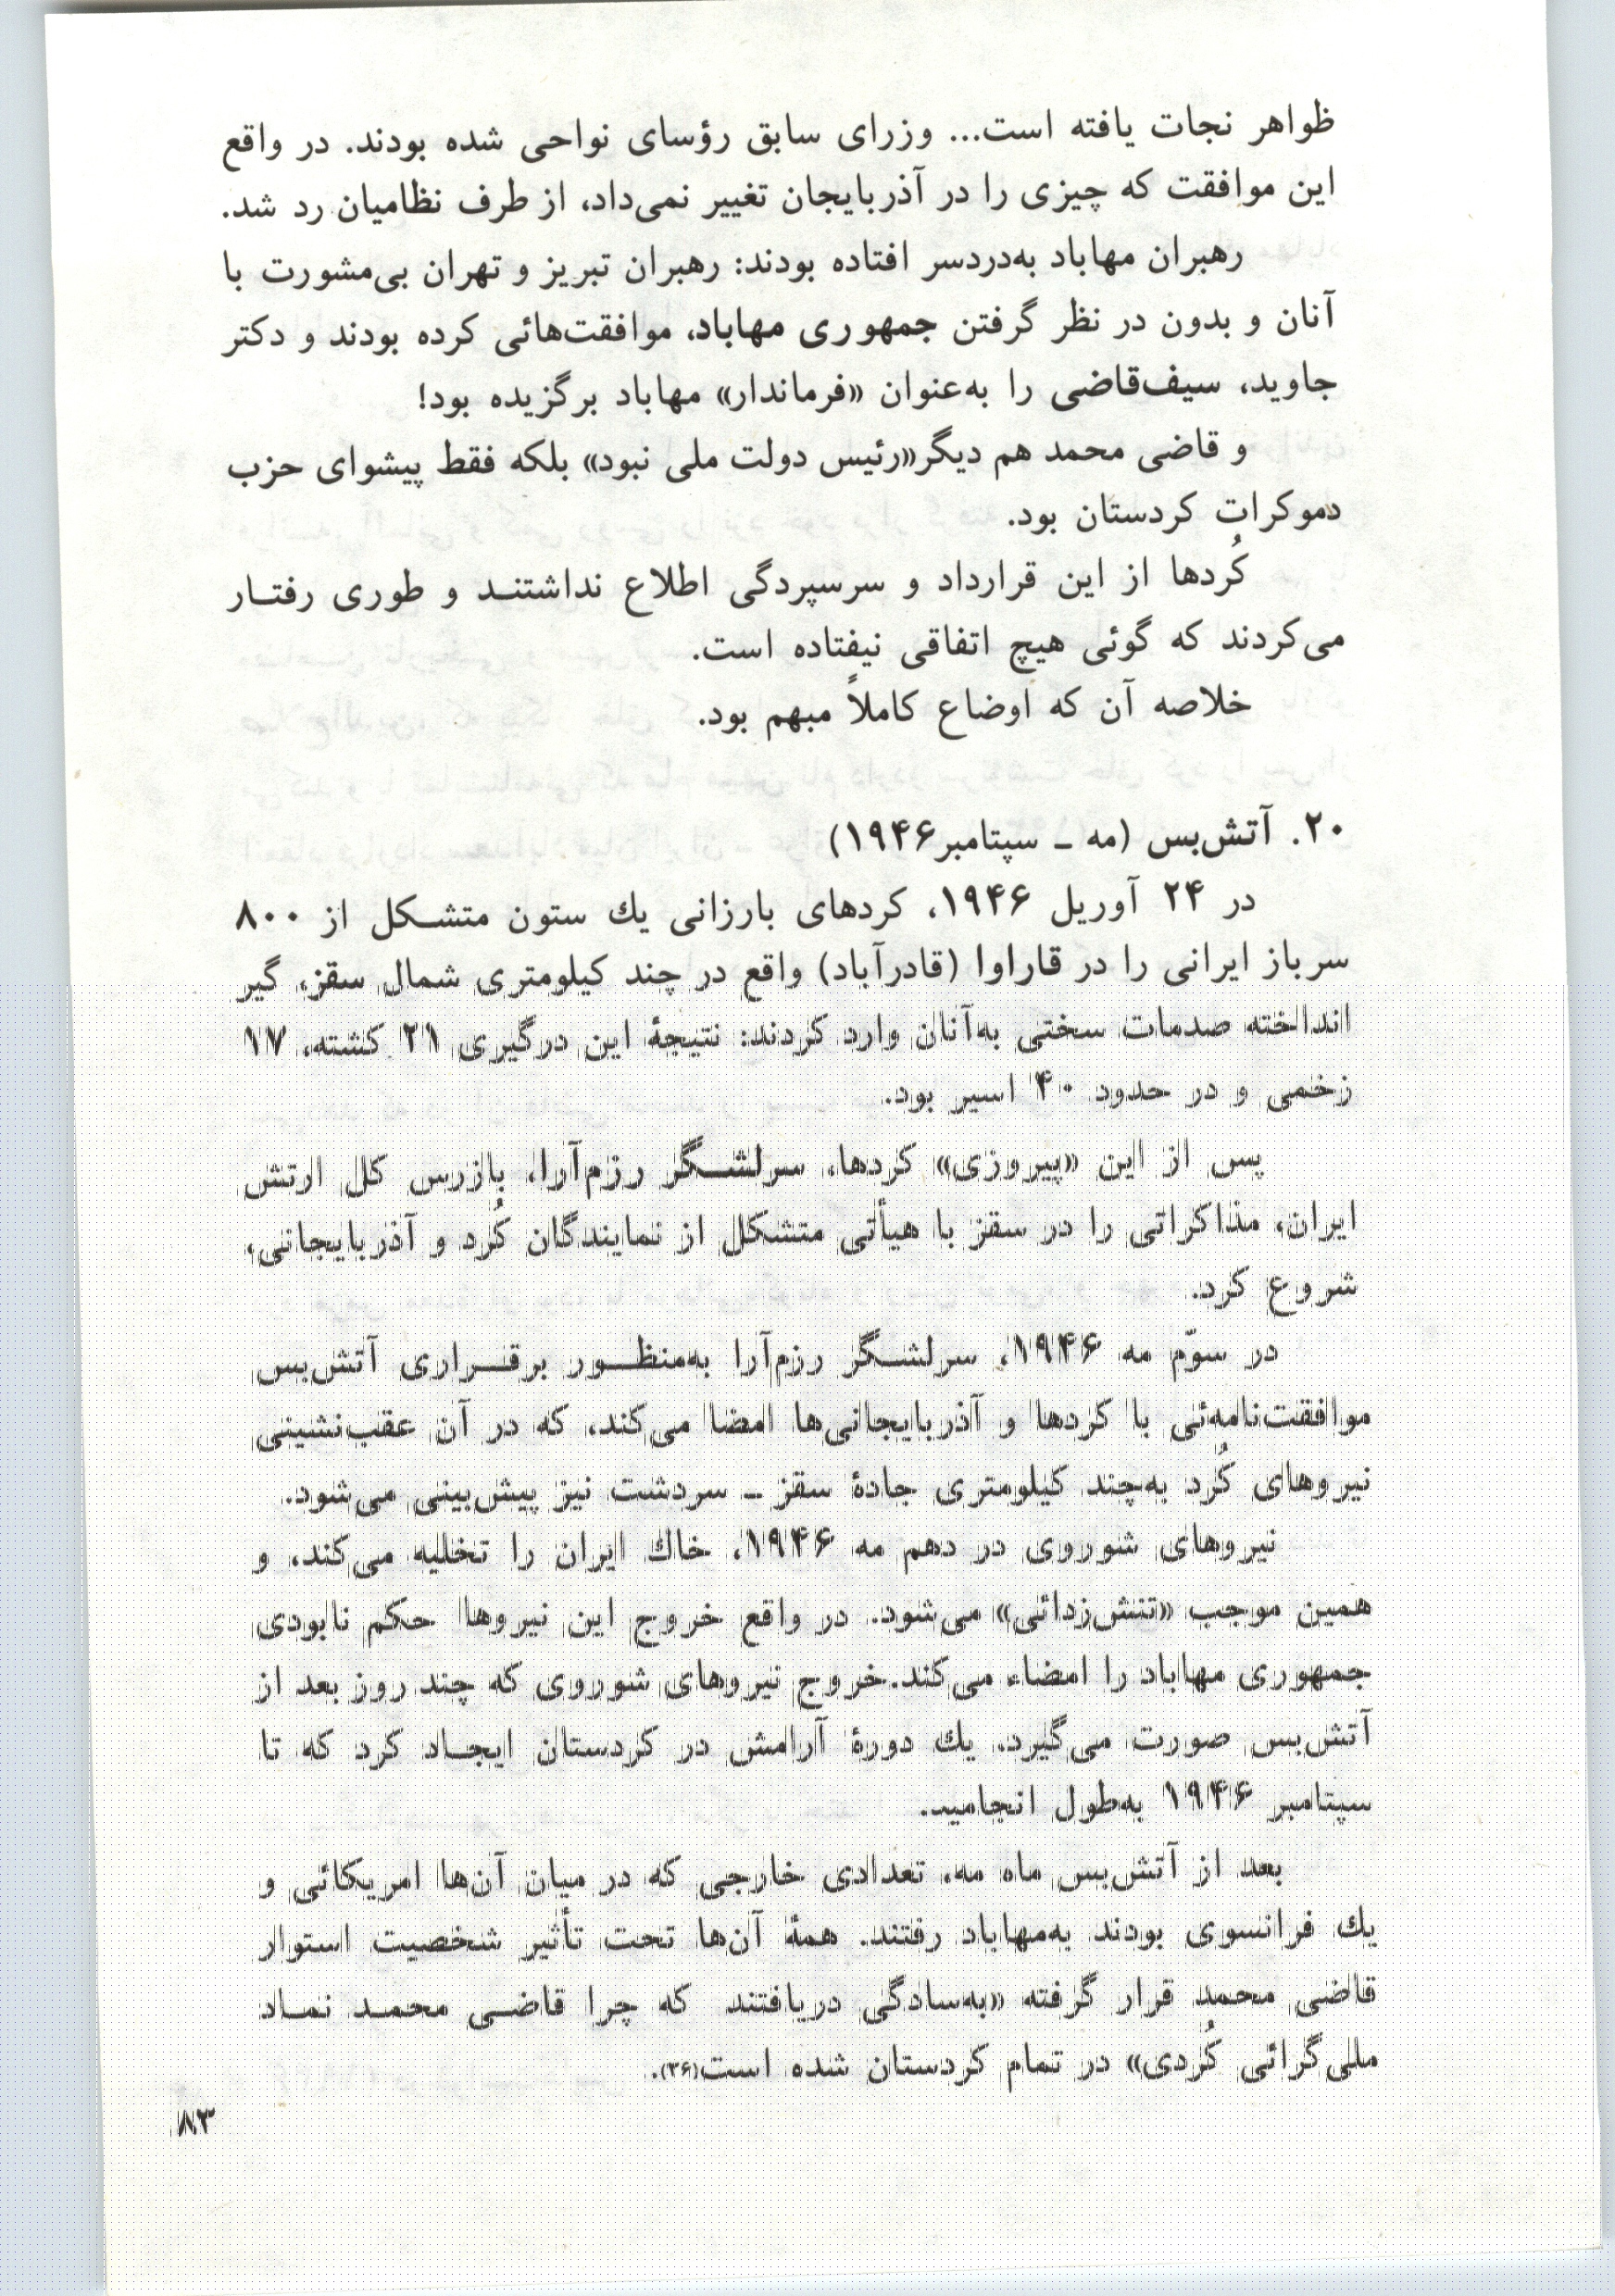 ظواهر نجات یافته است... وزرای سابق رؤسای نواحی شده بودند. در واقع
این موافقت که چیزی را در آذربایجان تغییر نمی‌داد، از طرف نظامیان رد شد.
رهبران مهاباد به‌دردسر افتاده بودند: رهبران تبریز و تهران بی‌مشورت با
آنان و بدون در نظر گرفتن جمهوری مهاباد، موافقت‌هائی کرده بودند و دکتر
جاوید، سیف‌قاضی را به‌عنوان «فرماندار» مهاباد برگزیده بود!
و قاضی محمد هم دیگر«رئیس دولت ملی نبود» بلکه فقط پیشوای حزب
دموکرات کردستان بود.
کُردها از این قرارداد و سرسپردگی اطلاع نداشتنـد و طوری رفتـار
می‌کردند که گوئی هیچ اتفاقی نیفتاده است.
خلاصه آن که اوضاع کاملاً مبهم بود.
۲۰. آتش‌بس (مه ـ سپتامبر۱۹۴۶)
در ۲۴ آوریل ۱۹۴۶، کردهای بارزانی یك ستون متشـکل از ۸۰۰
سرباز ایرانی را در قاراوا (قادرآباد) واقع در چند کیلومتری شمال سقز، گیر
انداخته صدمات سختی به‌آنان وارد کردند: نتیجۀ این درگیری ۲۱ کشته، ۱۷
زخمی و در حدود ۴۰ اسیر بود.
پس از این «پیروزی» کردها، سرلشـگر رزم‌آرا، بازرس کل ارتش
ایران، مذاکراتی را در سقز با هیأتی متشکل از نمایندگان کُرد و آذربایجانی،
شروع کرد.
در سوّم مه ۱۹۴۶، سرلشـگر رزم‌آرا به‌منظـور برقـراری آتش‌بس
موافقت‌نامه‌ئی با کردها و آذربایجانی‌ها امضا می‌کند، که در آن عقب‌نشینی
نیروهای کُرد به‌چند کیلومتری جادۀ سقز ـ سردشت نیز پیش‌بینی می‌شود.
نیروهای شوروی در دهم مه ۱۹۴۶، خاك ایران را تخلیه می‌کند، و
همین موجب «تنش‌زدائی» می‌شود. در واقع خروج این نیروها حکم نابودی
جمهوری مهاباد را امضاء می‌کند. خروج نیروهای شوروی که چند روز بعد از
آتش‌بس صورت می‌گیرد. یك دورۀ آرامش در کردستان ایجـاد کرد که تا
سپتامبر ۱۹۴۶ به‌طول انجامید.
بعد از آتش‌بس ماه مه، تعدادی خارجی که در میان آن‌ها امریکائی و
یك فرانسوی بودند به‌مهاباد رفتند. همۀ آن‌ها تحت تأثیر شخصیت استوار
قاضی محمد قرار گرفته «به‌سادگی دریافتند که چرا قاضـی محمـد نمـاد
ملی‌گرائی کُردی» در تمام کردستان شده است(۳۶).
۸۳